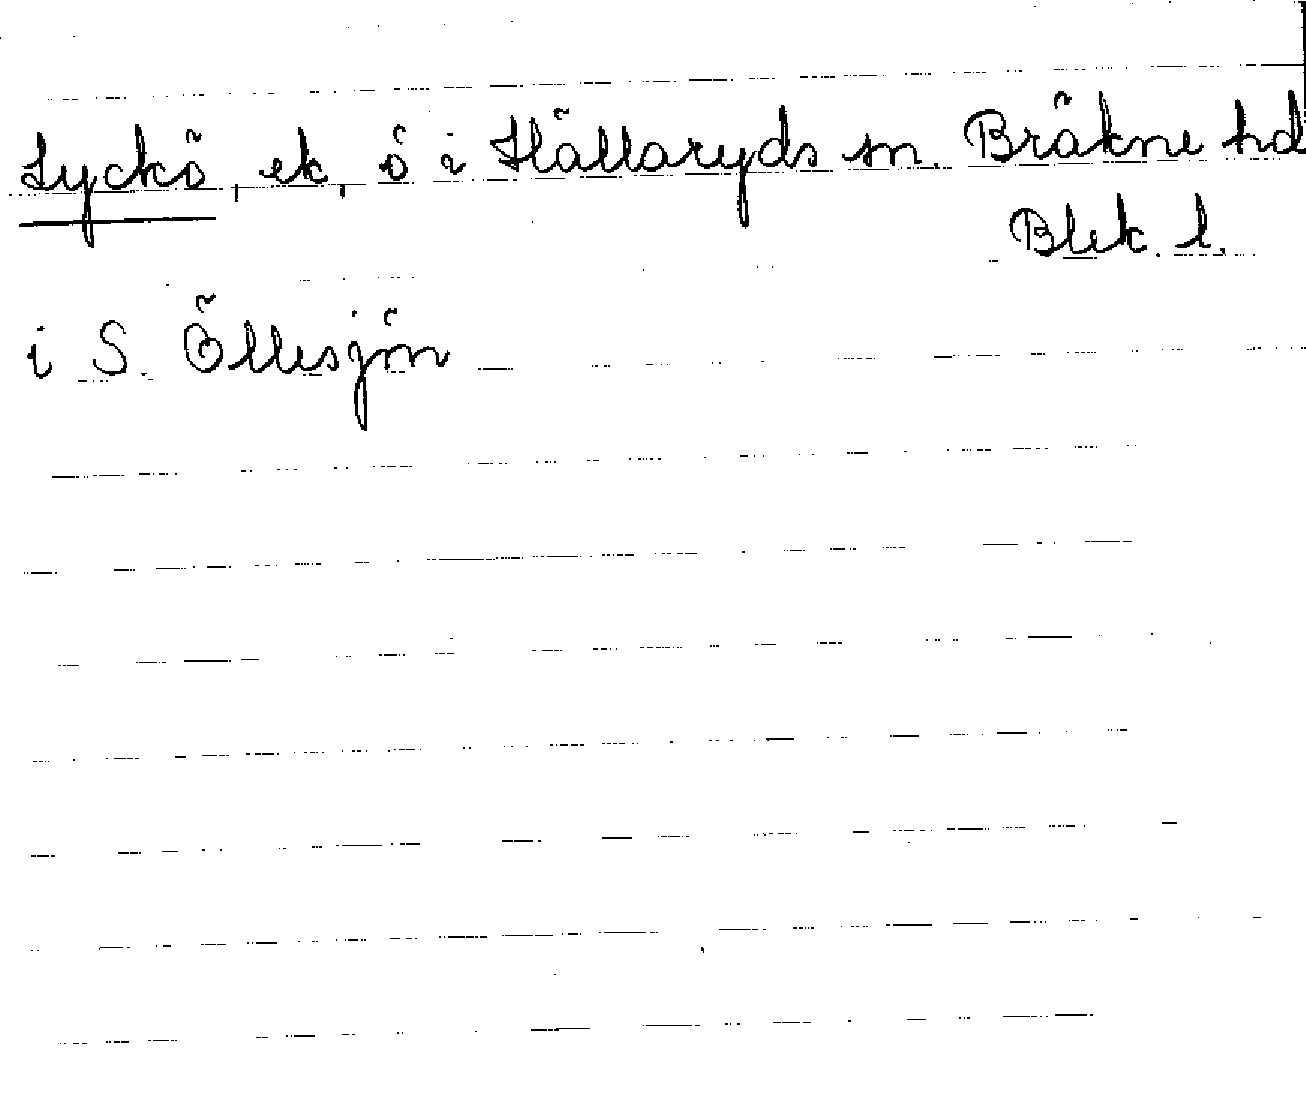 Lyckö, ek, ö i Hällaryds sn. Bräkne hd
Blek. l.
i S. Öllesjön